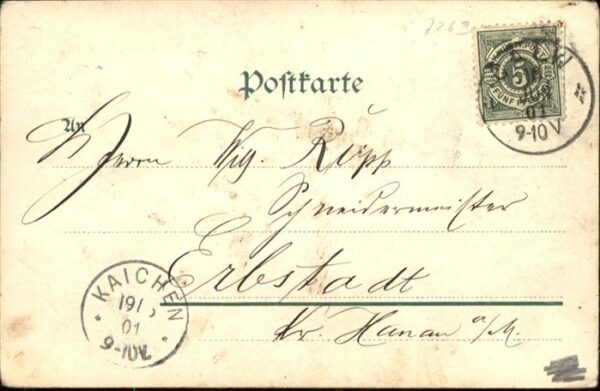 7263
Postkarte
5
FÜNF PFENNIG
01
9-10V
An
Herrn Wilh. Rupp
Schneidermeister
Erbstadt
Kr. Hanau a/M.
KAICHEN
19
01
9-10V